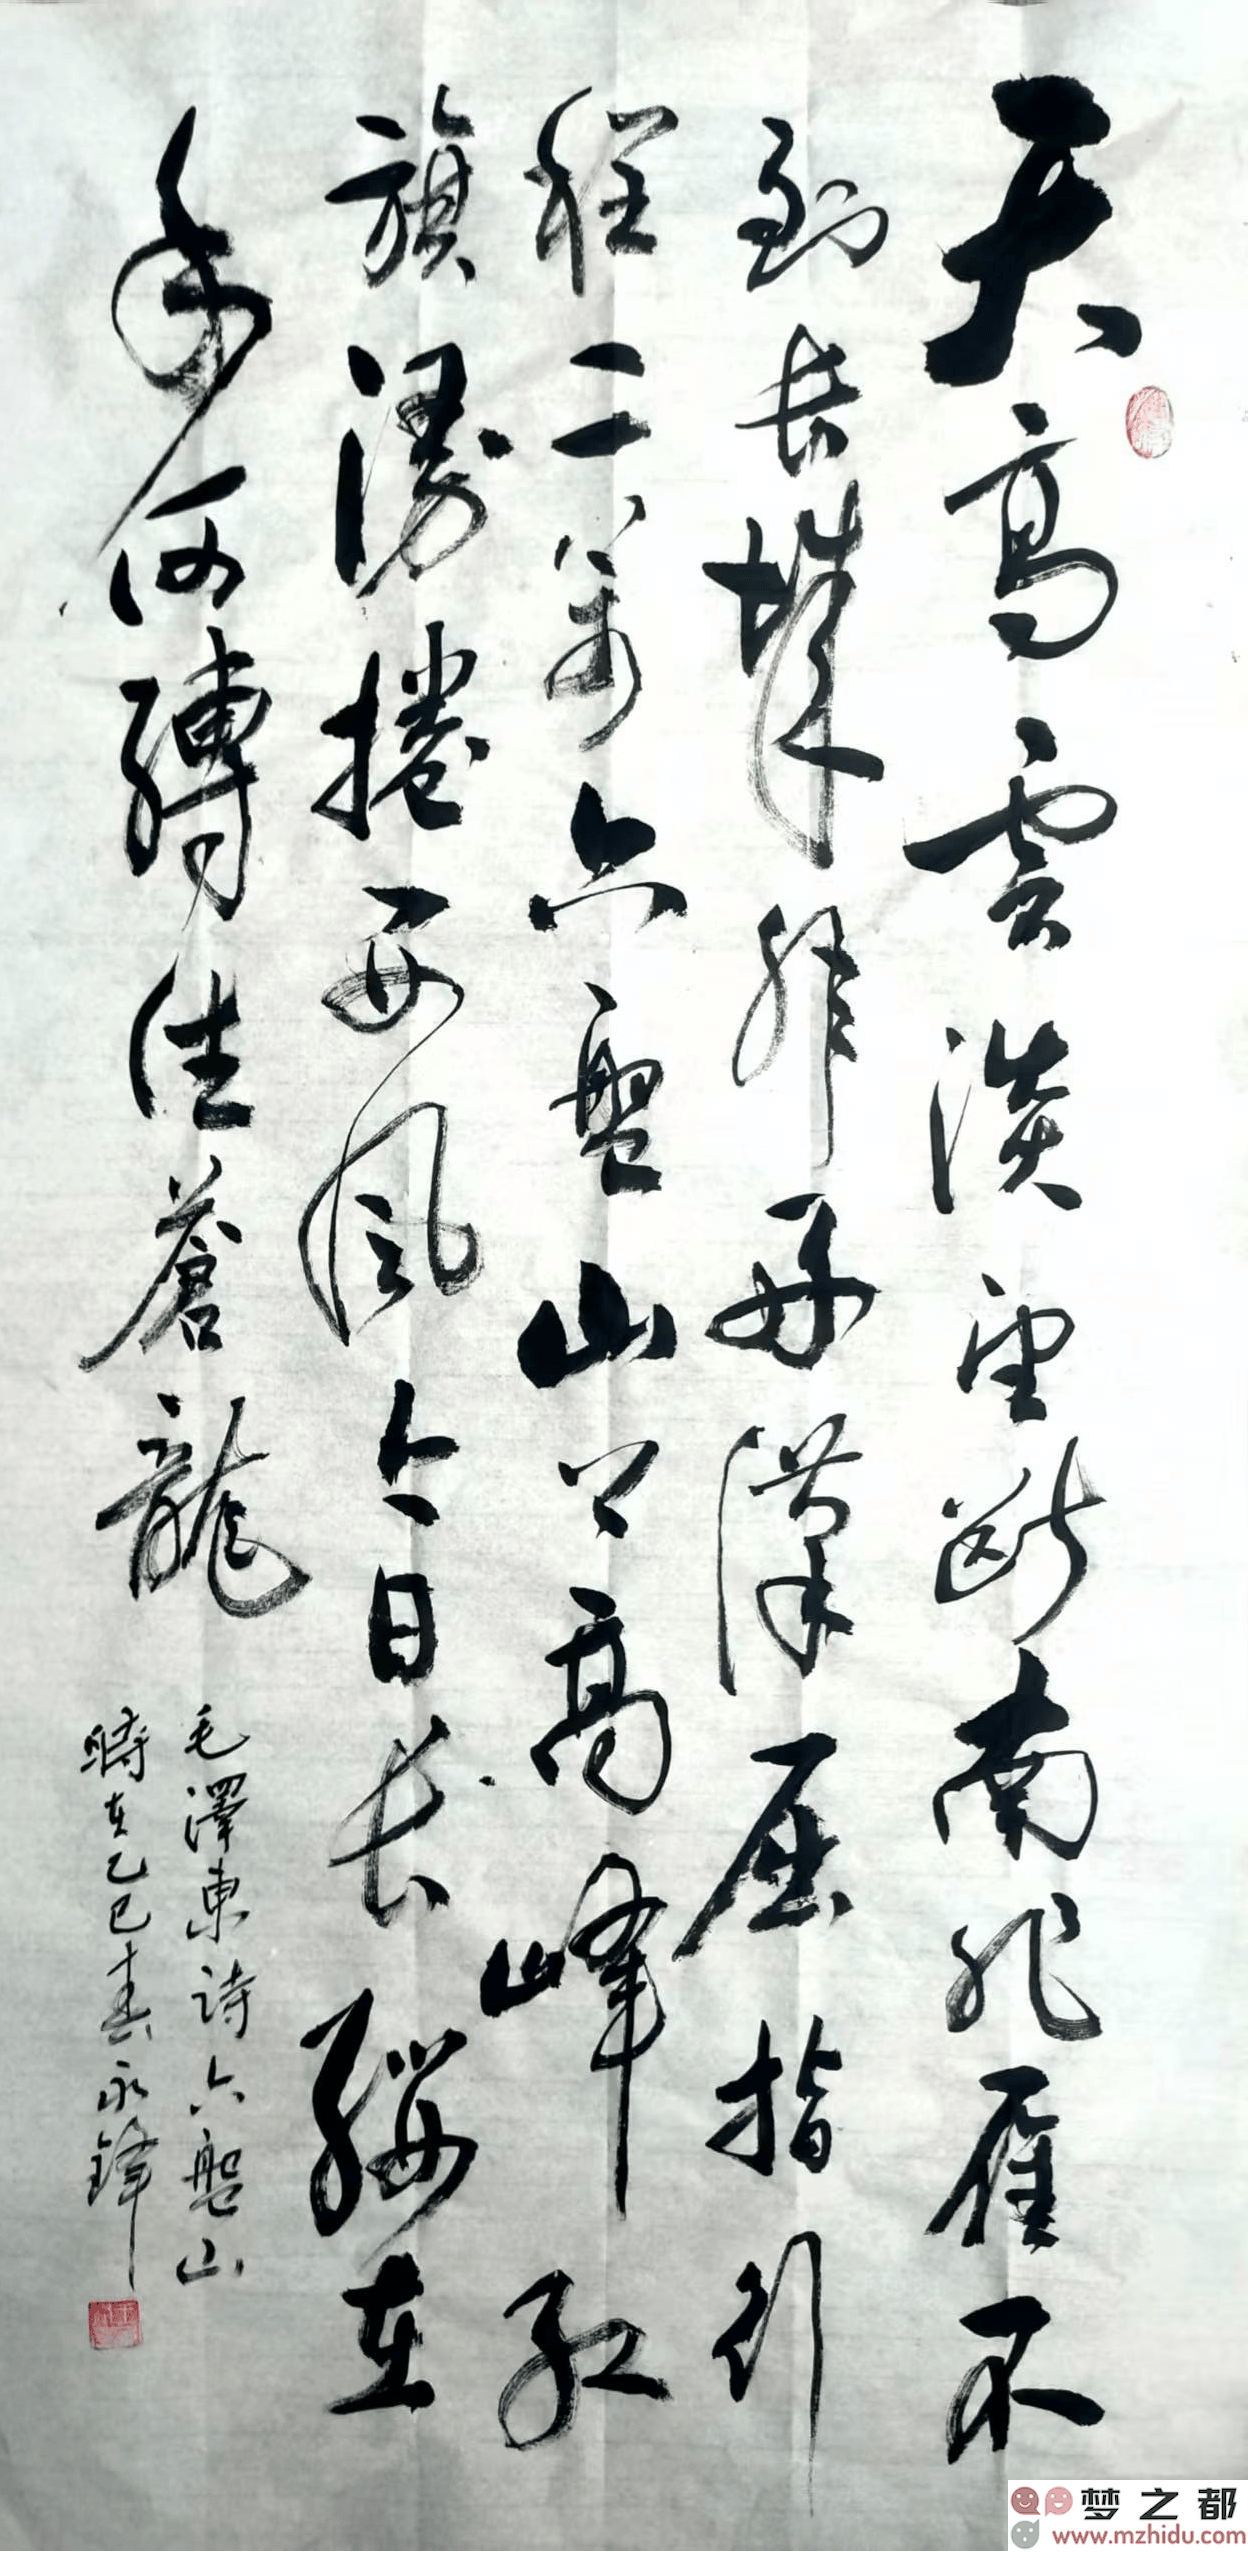 天高雲淡望斷南飛雁不
到长城非好漢屈指行
程二萬六盤山上高峰红
旗漫捲西风今日长缨在
手何縛住蒼龍
毛澤東詩六盤山
時在乙巳春永鋒
梦之都
www.mzhidu.com